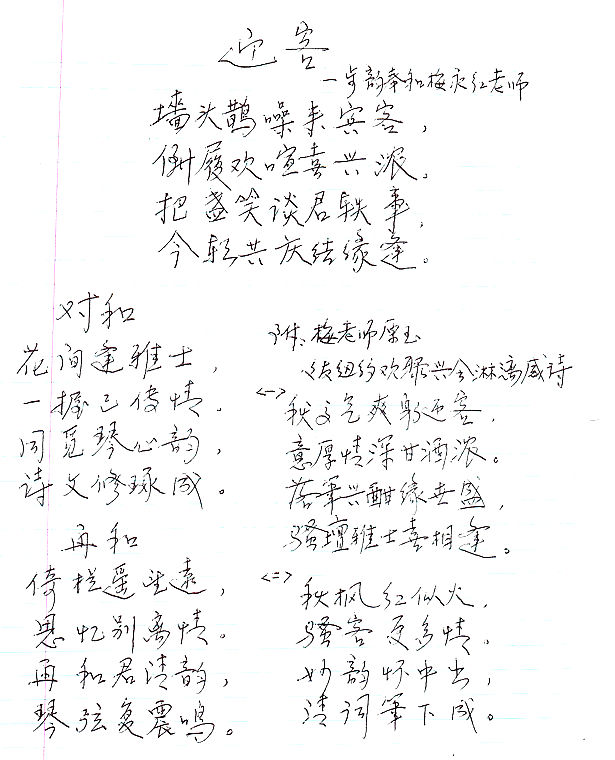 迎客
—步韵奉和梅永红老师
墙头鹊噪来宾客，
倒履欢喧喜兴浓。
把盏笑谈君轶事，
今朝共庆结缘逢。
对和
花间逢雅士，
一握已传情。
同觅琴心韵，
诗文修琢成。
再和
倚栏遥望远，
思忆别离情。
再和君清韵，
琴弦复震鸣。
附：梅老师原玉
纽约欢聚兴会淋漓感诗
<一>
秋高气爽迎客，
意厚情深甘酒浓。
落筆兴酣缘世盛，
骚壇雅士喜相逢。
<二>
秋枫红似火，
骚客更多情，
妙韵怀中出，
清词筆下成。